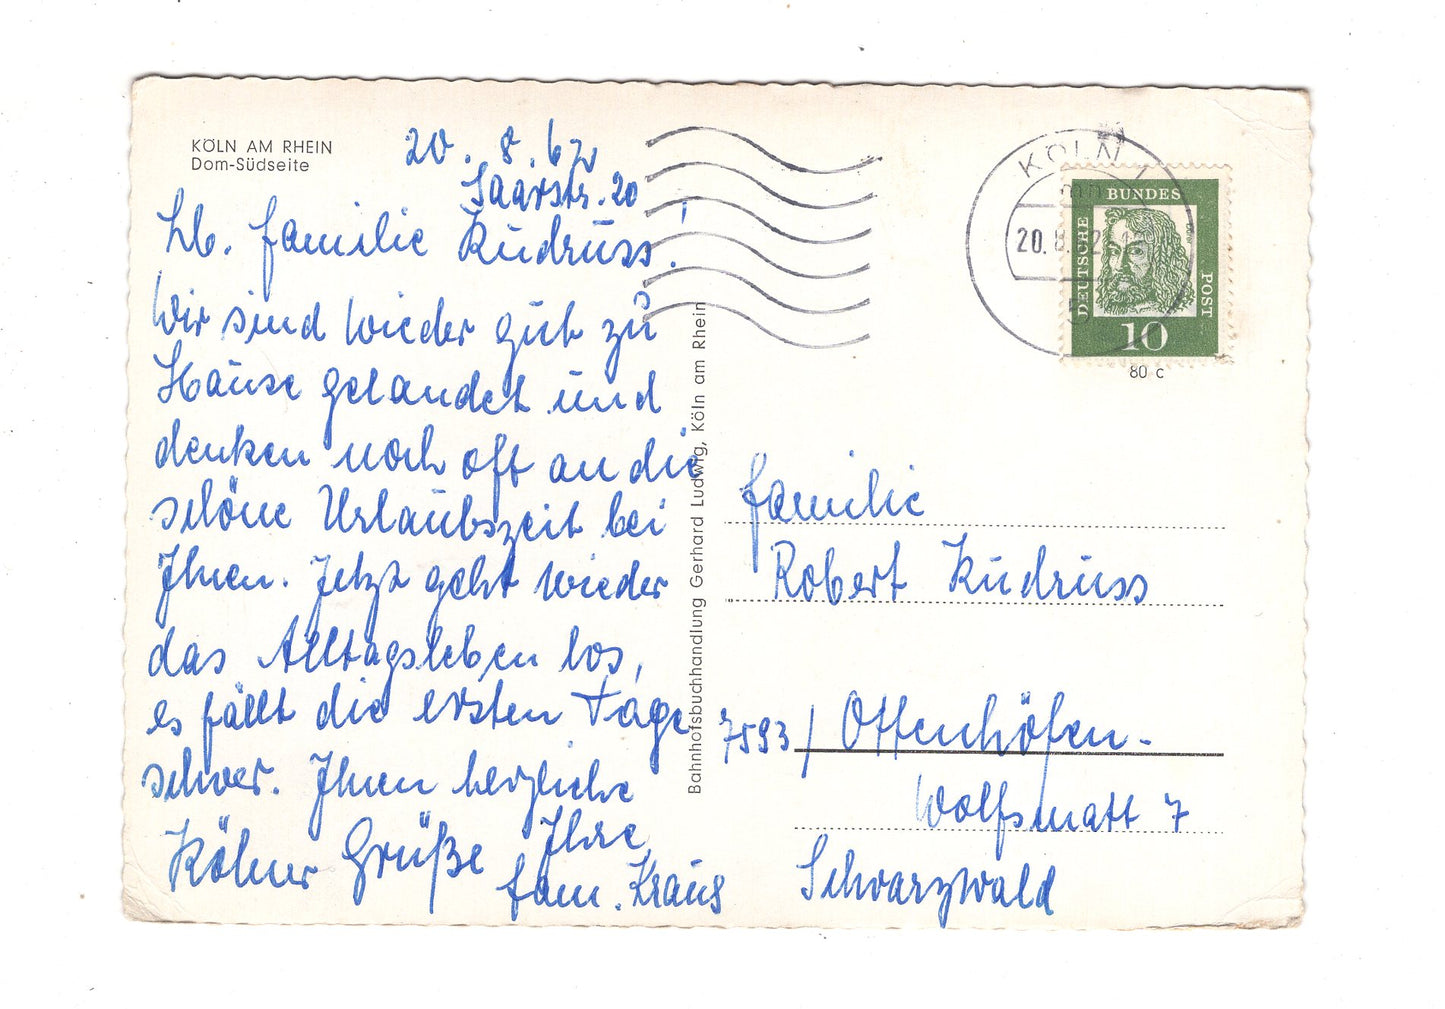 KÖLN AM RHEIN
Dom-Südseite
20. 8. 62
Saarstr. 20
Lb. Familie Kudruss!
Wir sind wieder gut zu
Hause gelandet und
denken noch oft an die
schöne Urlaubszeit bei
Ihnen. Jetzt geht wieder
das Alltagsleben los,
es fällt die ersten Tage
schwer. Ihnen herzliche
Kölner Grüße Ihre
Fam. Kraus
Bahnhofsbuchhandlung Gerhard Ludwig, Köln am Rhein
KÖLN 1
20. 8. 62
5
DEUTSCHE BUNDES POST
10
80 c
Familie
Robert Kudruss
7593 / Ottenhöfen-
Wolfsmatt 7
Schwarzwald